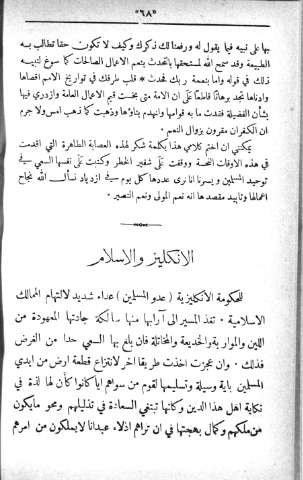 «٦٨»
بها على نبيه فيما يقول له ورفعنا لك ذكرك وكيف لا تكون حقا تطالب به
الطبيعة وقد سمح الله لمستحقها بالتحدث بنعم الاعمال الصالحات كما سوغ لنبيه
ذلك في قوله واما بنعمة ربك فحدث * قلب طرفك في تواريخ الامم اقصاها
وادناها تجد برهانا قاطعا على ان الامة متى بخست قيم الاعمال العامة وازدري فيها
بشأن الفضيلة فقدت ما به قوامها وانهدم بناؤها وذهبت كما ذهب امس ولا جرم
ان الكفران مقرون بزوال النعم .
يمكنني ان اختم كلامي هذا بكلمة شكر لهذه العصابة الطاهرة التي اقدمت
في هذه الاوقات النحسة ووقفت على شفير الخطر وكتبت على نفسها السعي في
توحيد المسلمين ويسرنا انا نرى عددها كل يوم في ازدياد نسأل الله نجاح
اعمالها وتاييد مقصدها انه نعم المولى ونعم النصير .
الانكليز والاسلام
للحكومة الانكليزية (عدو المسلمين) عداء شديد لالتهام الممالك
الاسلامية . تغذ المسير الى آرابها منها سالكة جادتها المعهودة من
اللين والمواربة والخديعة والمخاتلة فان بلغ بها السعي حدا من الغرض
فذلك . وان عجزت اخذت طريقا آخر لانتزاع قطعة ارض من ايدي
المسلمين باية وسيلة وتسليمها لقوم من سواهم ايا كانوا كأن لها لذة في
نكاية اهل هذا الدين وكانها تبتغي السعادة في تذليلهم ومحو ما يكون
من ملكهم وكمال بهجتها في ان تراهم اذلاء عبدانا لا يملكون من امرهم